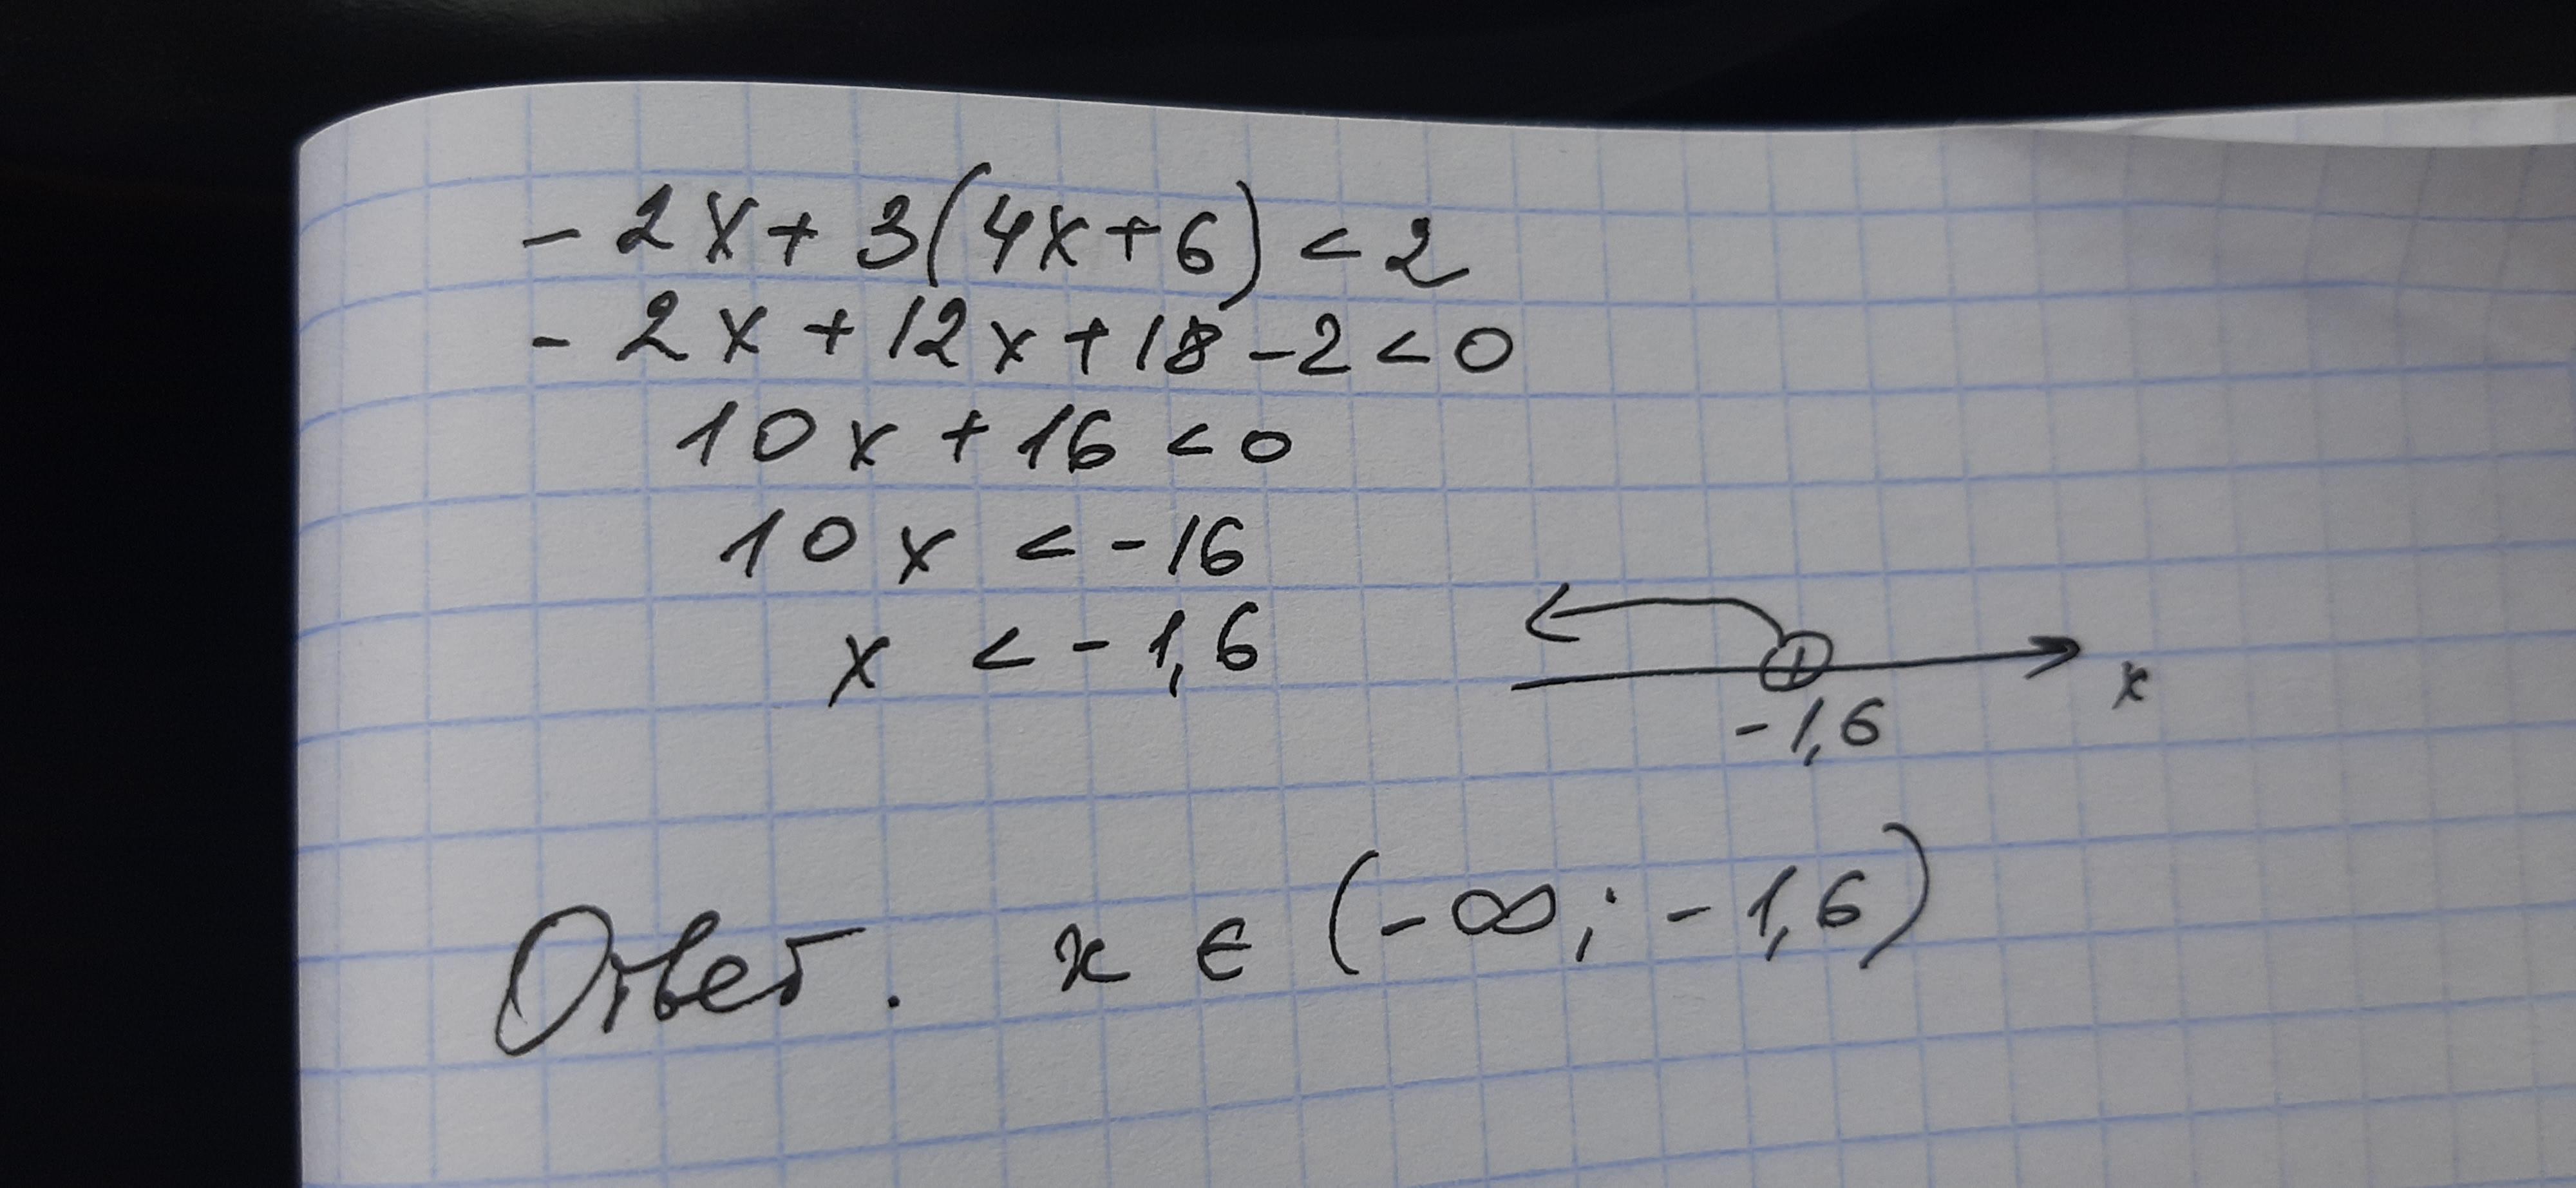 - 2x + 3(4x + 6) < 2
- 2x + 12x + 18 - 2 < 0
10x + 16 < 0
10x < - 16
x < - 1,6
- 1,6
x
Ответ. x ∈ (- ∞; - 1,6)